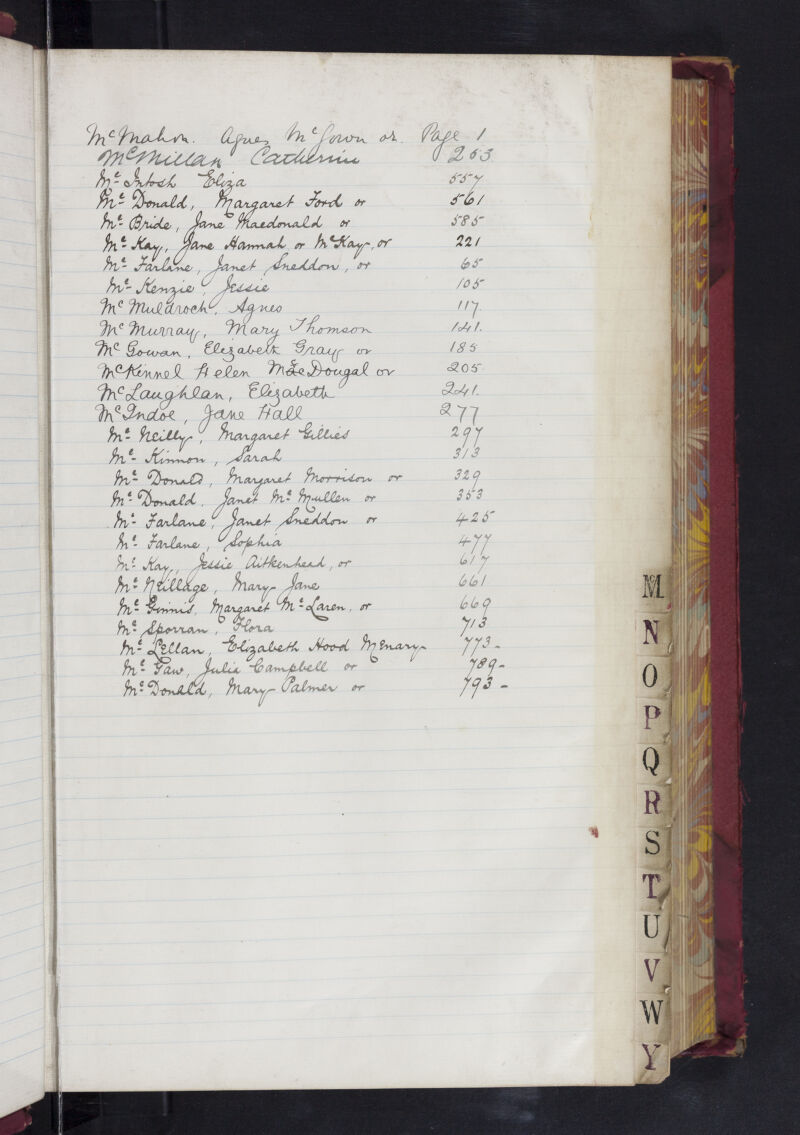 McMahon. Agnes McGown or. Page 1
McMillan Catherine 253
McIntosh Eliza 557
McDonald, Margaret Ford or 561
McBride, Jane Macdonald or 585
McKay, Jane Hannah or McKay, or 221
McFarlane, Janet Sneddon, or 65
McKenzie, Jessie 105
McMuldroch, Agnes 117.
McMurray, Mary Thomson 141.
McGowan, Elizabeth Gray or 185
McKinnel Helen McDougal or 205
McLaughlan, Elizabeth 241.
McIndoe, Jane Hall 277
McNeilly, Margaret Gillies 297
McKinnon, Sarah 313
McDonald, Margaret Morrison or 329
McDonald. Janet McMullen or 353
McFarlane, Janet Sneddon or 425
McFarlane, Sophia 477
McKay, Jessie Aitkenhead, or 617
McNeillage, Mary Jane 661
McGinnis, Margaret McLaren, or 669
McSporran, Flora 713
McLellan, Elizabeth Hood McNary 773-
McGaw, Julia Campbell or 789-
McDonald, Mary Palmer or 793-
M
N
O
P
Q
R
S
T
U
V
W
Y